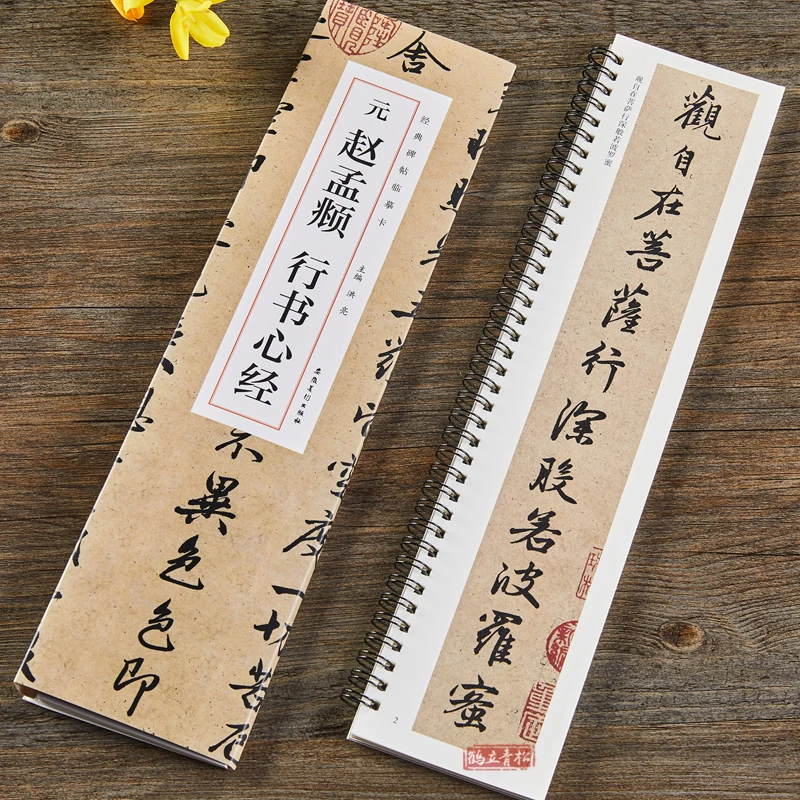 经典碑帖临摹卡
元 赵孟頫 行书心经
主编 洪亮
安徽美术出版社
舍
不異色色即
度一切苦厄
观自在菩萨行深般若波罗蜜
觀自在菩薩行深般若波羅蜜
2
鹤立青松